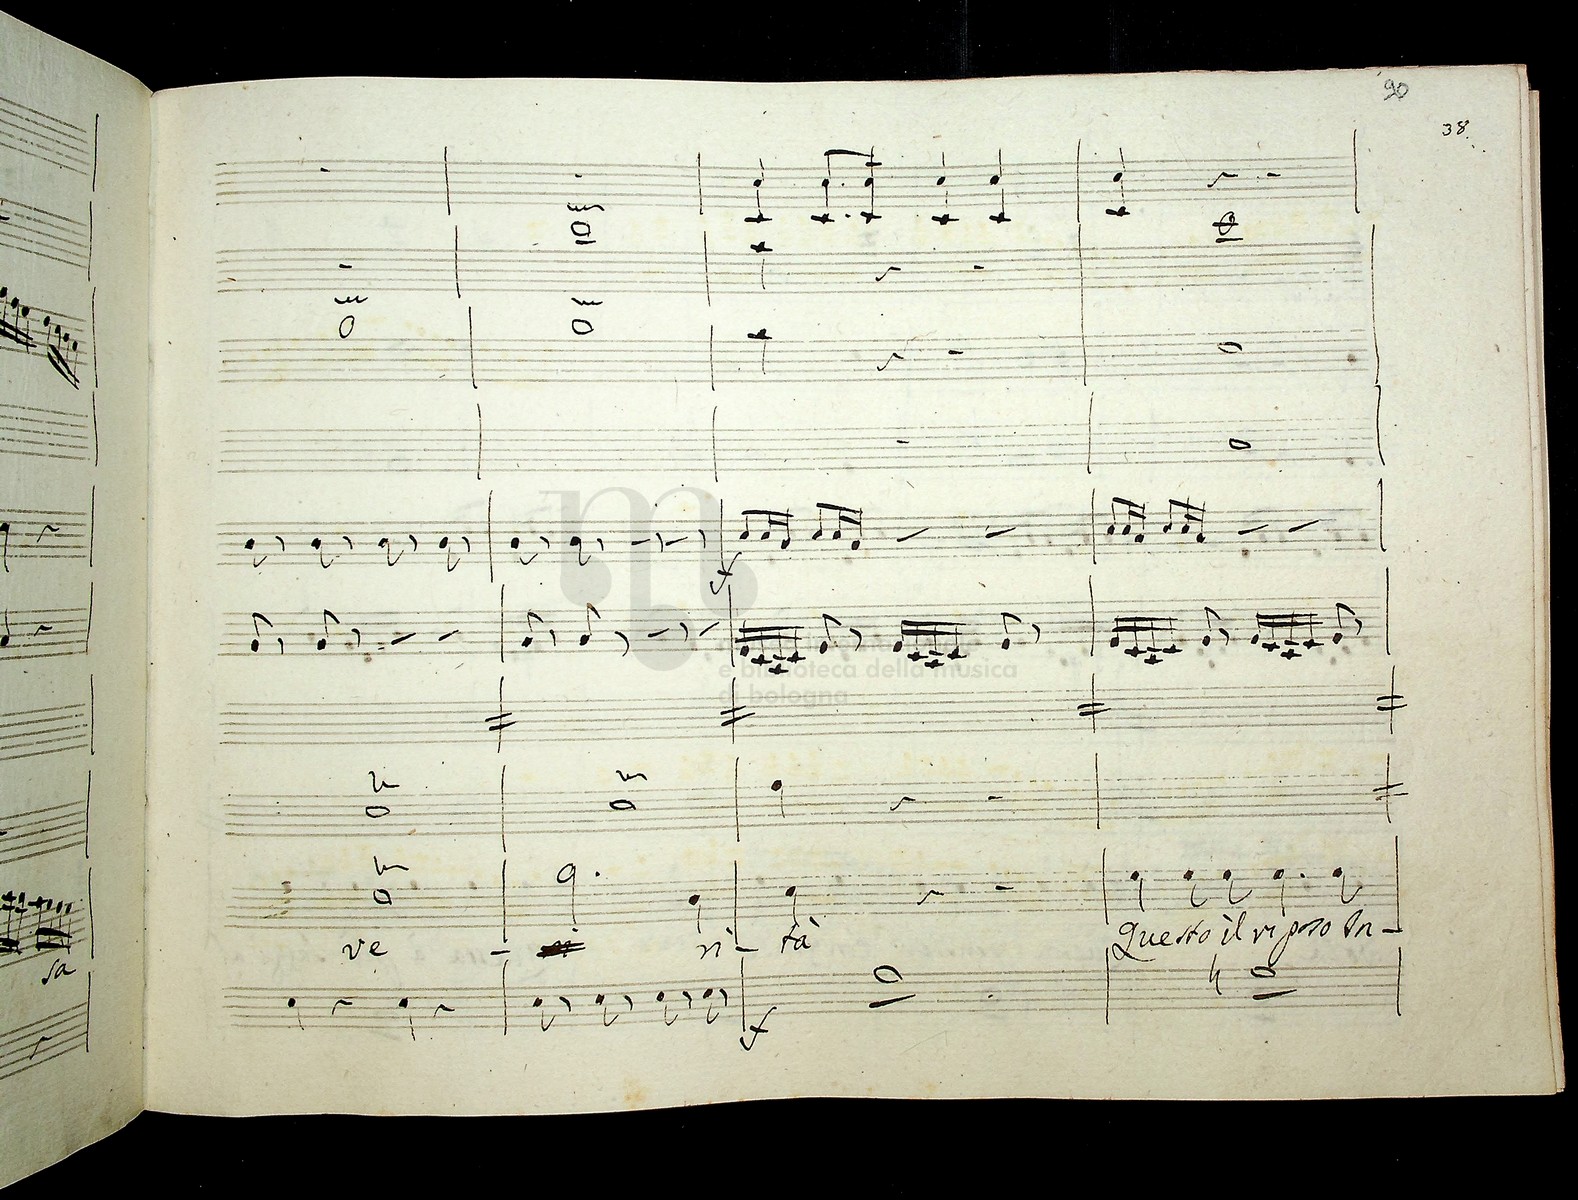 90
38.
f
e biblioteca della musica
di bologna
ve - ri - tà Questo il riposo In -
f
sa